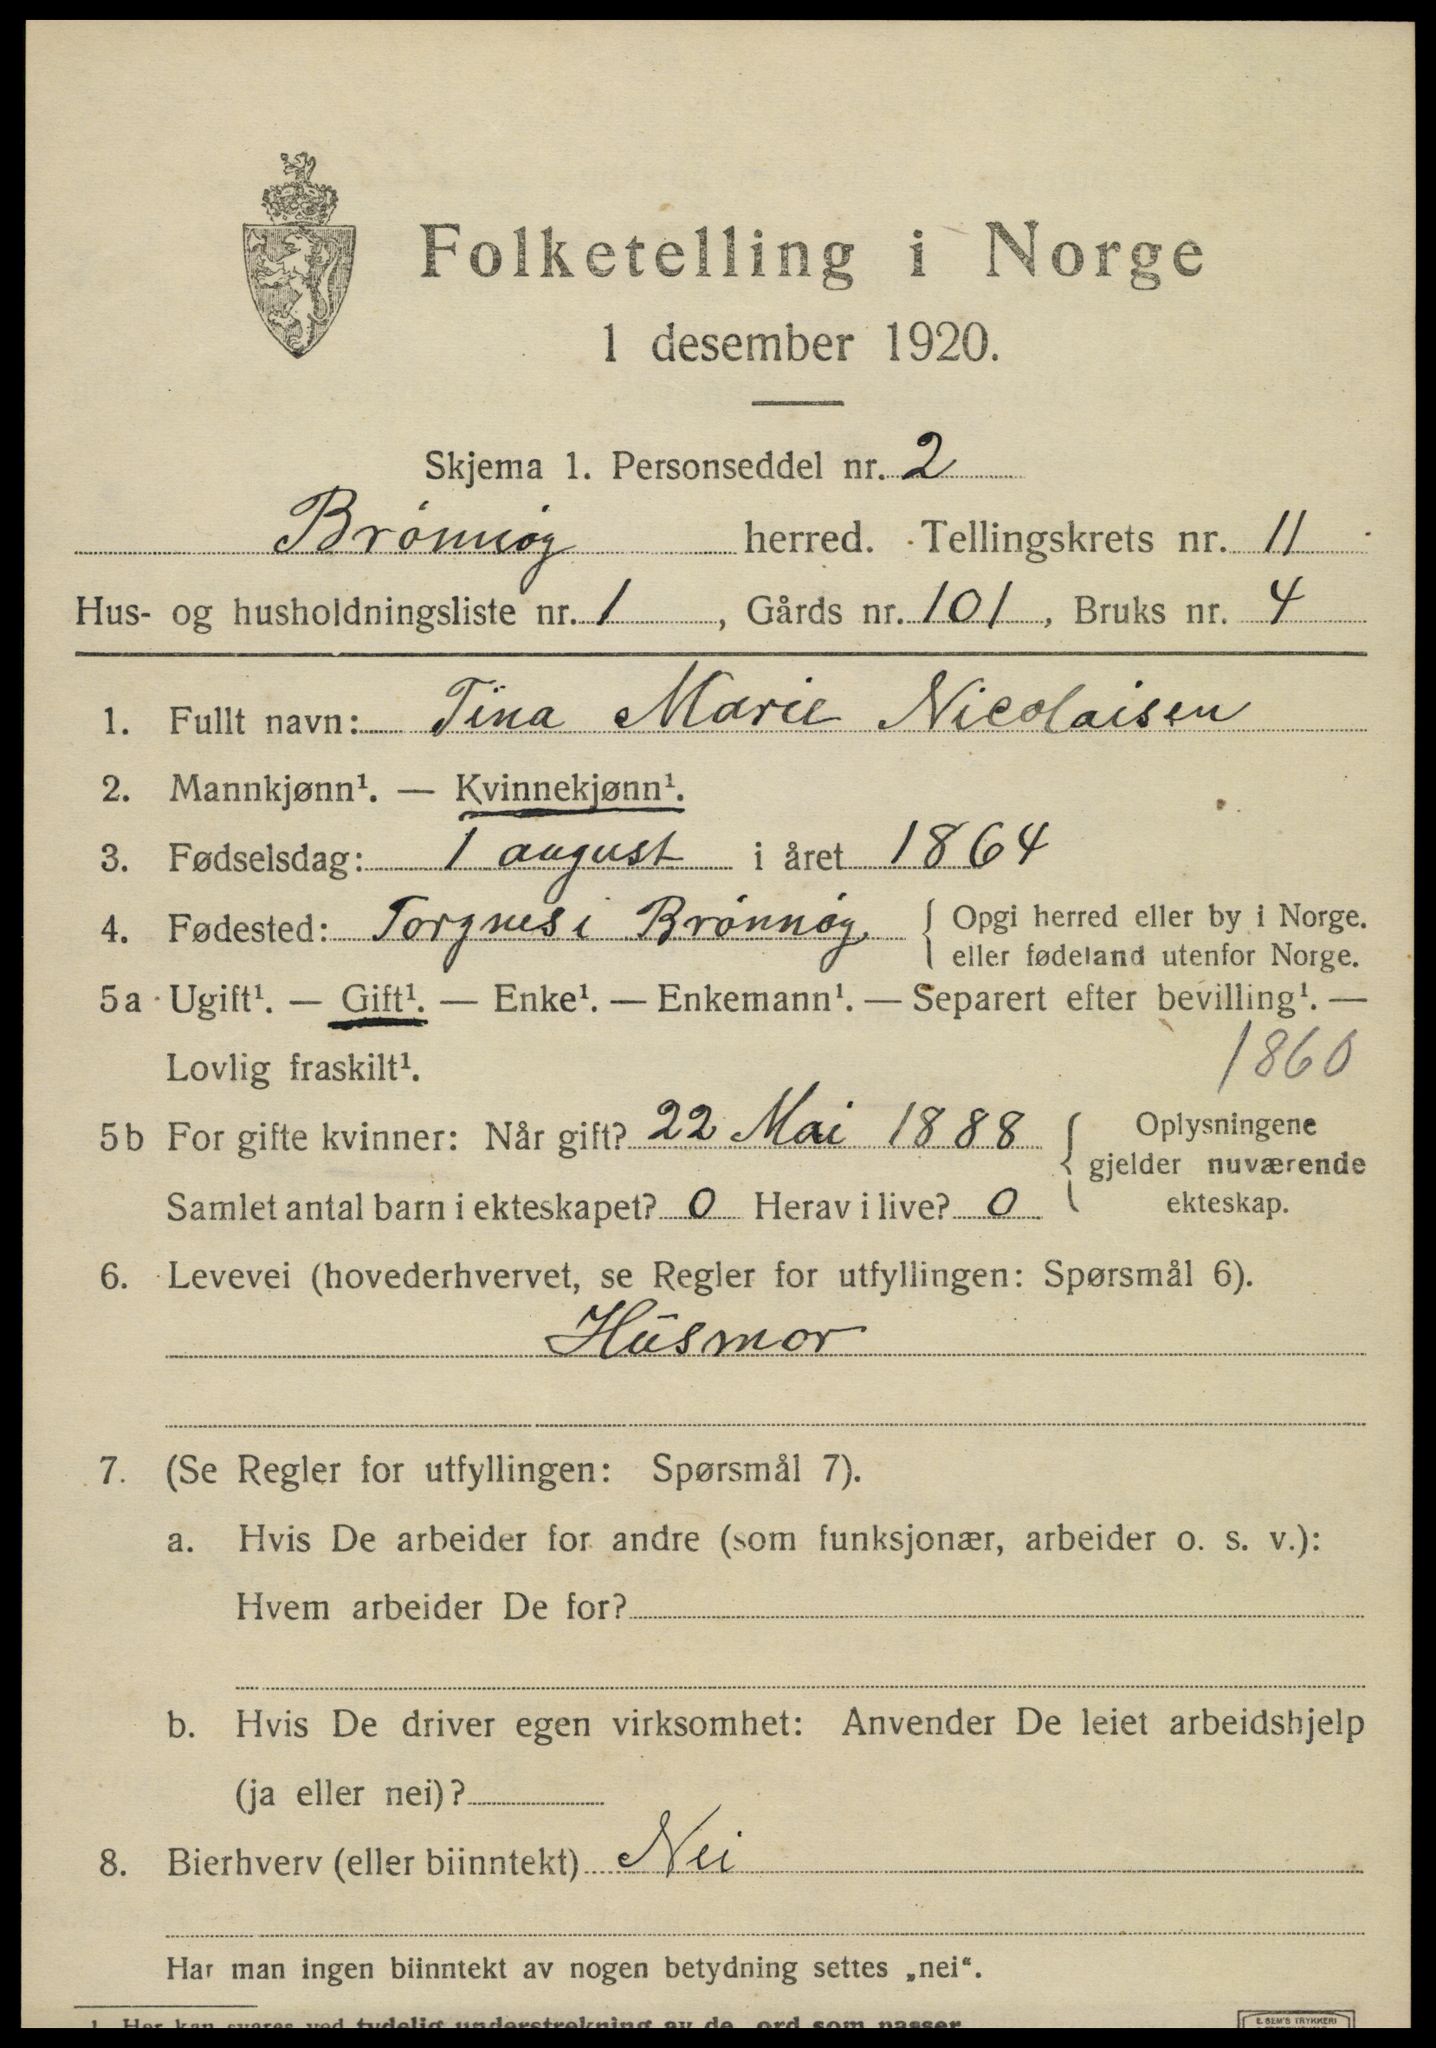 Folketelling i Norge
1 desember 1920.
Skjema 1. Personseddel nr. 2
Brönnöy herred. Tellingskrets nr. 11
Hus- og husholdningsliste nr. 1, Gårds nr. 101, Bruks nr. 4
1. Fullt navn: Tina Marie Nicolaisen
2. Mannkjønn¹. — Kvinnekjønn¹.
3. Fødselsdag: 1 august i året 1864
4. Fødested: Torgnes i Brönnöy { Opgi herred eller by i Norge.
eller fødeland utenfor Norge.
5a Ugift¹. — Gift¹. — Enke¹. — Enkemann¹. — Separert efter bevilling¹. —
Lovlig fraskilt¹. 1860
5b For gifte kvinner: Når gift? 22 Mai 1888 { Oplysningene
gjelder nuværende
Samlet antal barn i ekteskapet? 0 Herav i live? 0 ekteskap.
6. Levevei (hovederhvervet, se Regler for utfyllingen: Spørsmål 6).
Husmor
7. (Se Regler for utfyllingen: Spørsmål 7).
a. Hvis De arbeider for andre (som funksjonær, arbeider o. s. v.):
Hvem arbeider De for?
b. Hvis De driver egen virksomhet: Anvender De leiet arbeidshjelp
(ja eller nei)?
8. Bierhverv (eller biinntekt) Nei
Har man ingen biinntekt av nogen betydning settes „nei“.
1 Her kan svares ved tydelig understrekning av de ord som passer
E. SEM'S TRYKKERI